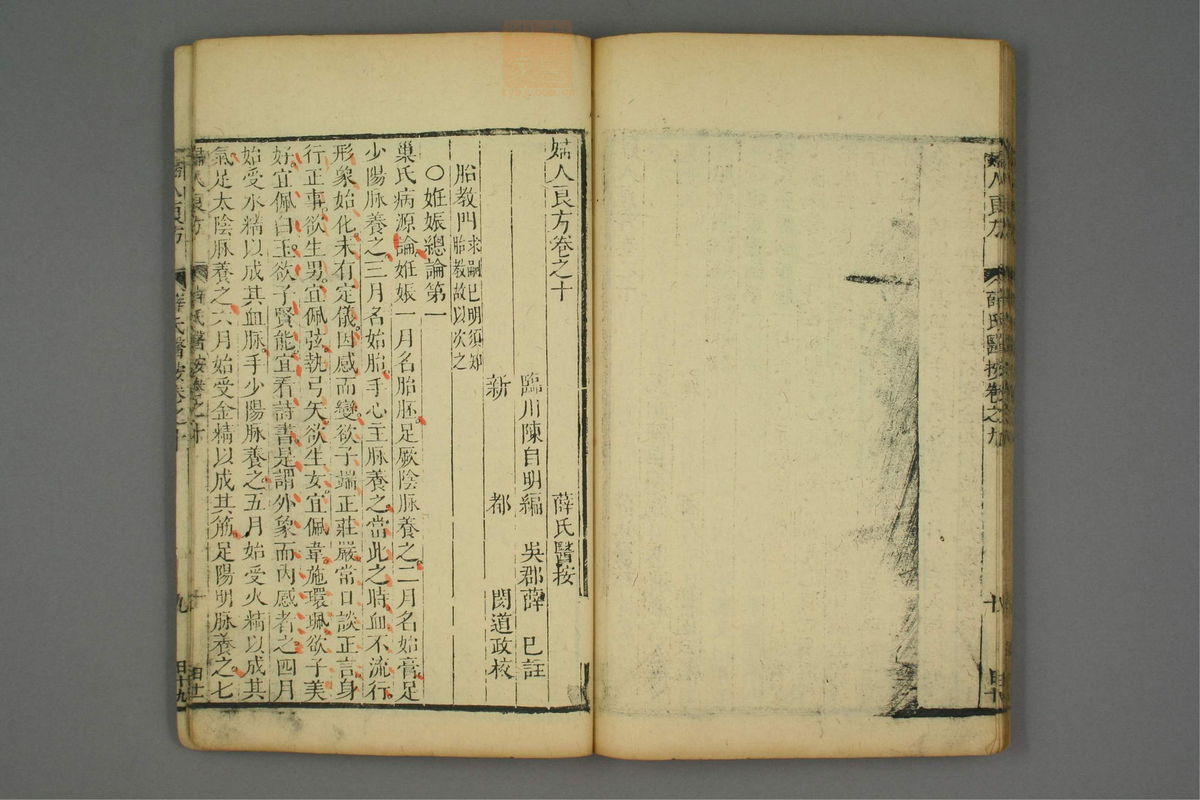 婦人良方卷之十　薛氏醫按
臨川陳自明編　吳郡薛　已註
新　都　閔道政校
胎教門求嗣已明須知胎教故以次之
○姙娠總論第一
巢氏病源論姙娠一月名胎胚足厥陰脉養之二月名始膏足
少陽脉養之三月名始胎手心主脉養之當此之時血不流行
形象始化未有定儀因感而變欲子端正莊嚴常口談正言身
行正事欲生男宜佩弦執弓矢欲生女宜佩韋施環珮欲子美
好宜佩白玉欲子賢能宜看詩書是謂外象而內感者之四月
始受水精以成其血脉手少陽脉養之五月始受火精以成其
氣足太陰脉養之六月始受金精以成其筋足陽明脉養之七
婦人良方　薛氏醫按卷之十
薛氏醫按卷之九